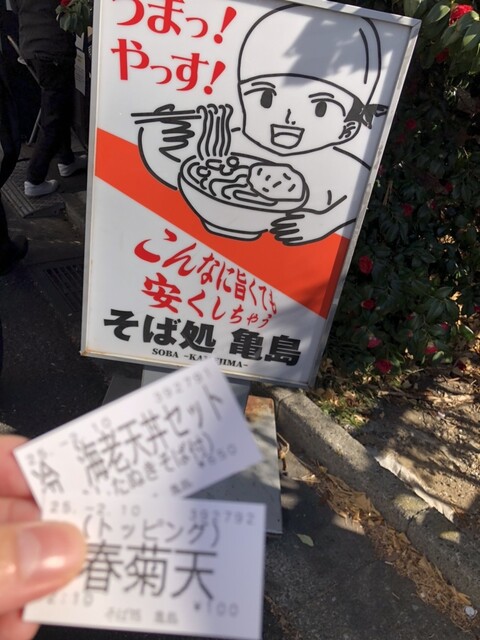 うまっ!
やっす!
こんなに旨くても
安くしちゃう
そば処 亀島
SOBA -KAMEJIMA-
-2.10 392791
海老天丼セット
冷 (たぬきそば付)
250
25.-2.10 392792
(トッピング)
春菊天
2:10 ¥100
そば処 亀島